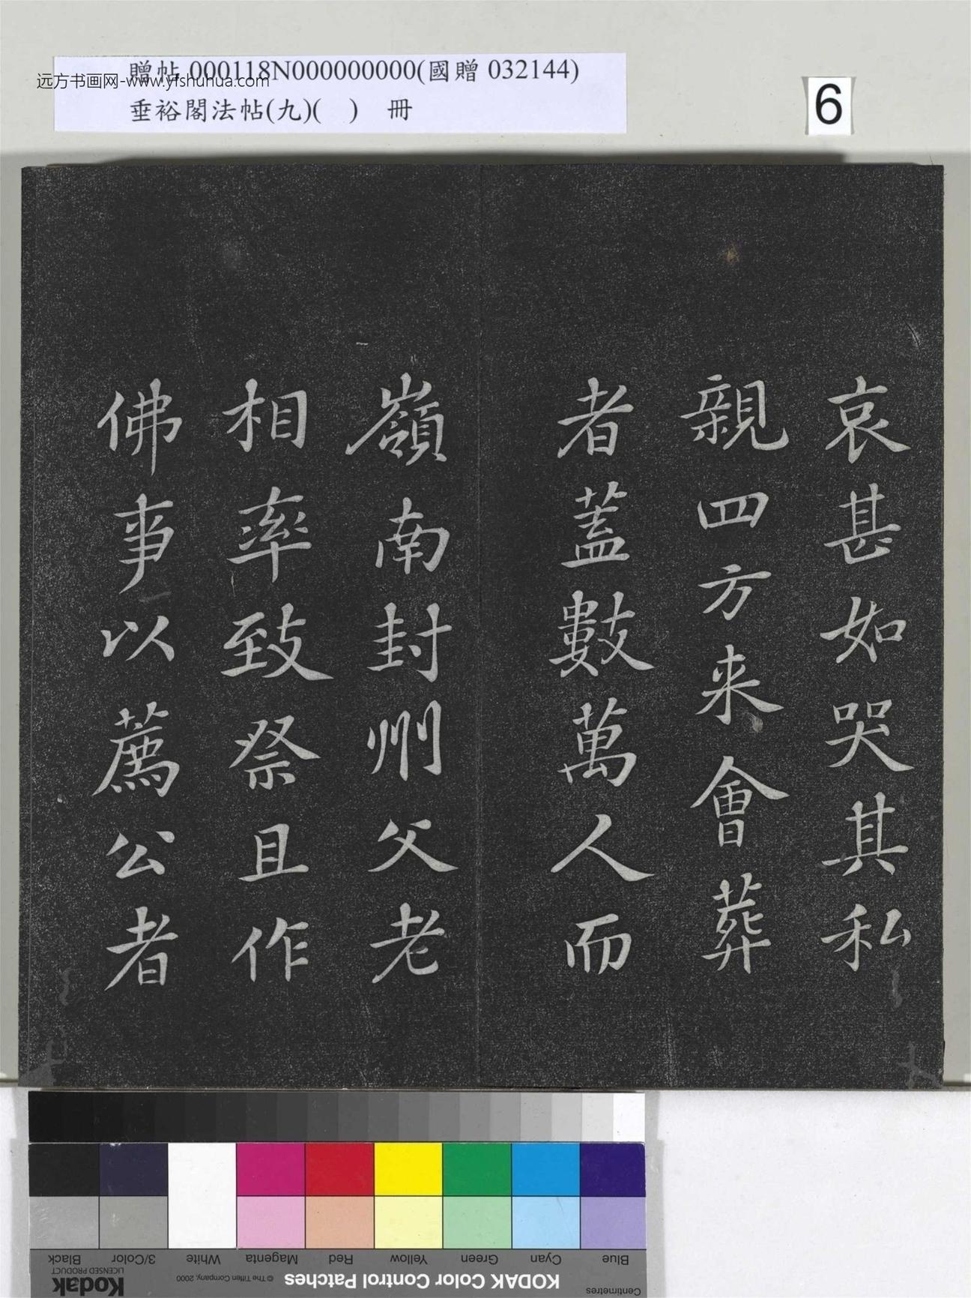 贈帖 000118N000000000(國贈 032144)
远方书画网-www.yfshuhua.com
垂裕閣法帖(九)( ) 冊
6
哀甚如哭其私
親四方来會葬
者蓋數萬人而
嶺南封州父老
相率致祭且作
佛事以薦公者
Blue Cyan Green Yellow Red Magenta White 3/Color Black
Centimetres
KODAK Color Control Patches © The Tiffen Company, 2000 Kodak
LICENSED PRODUCT